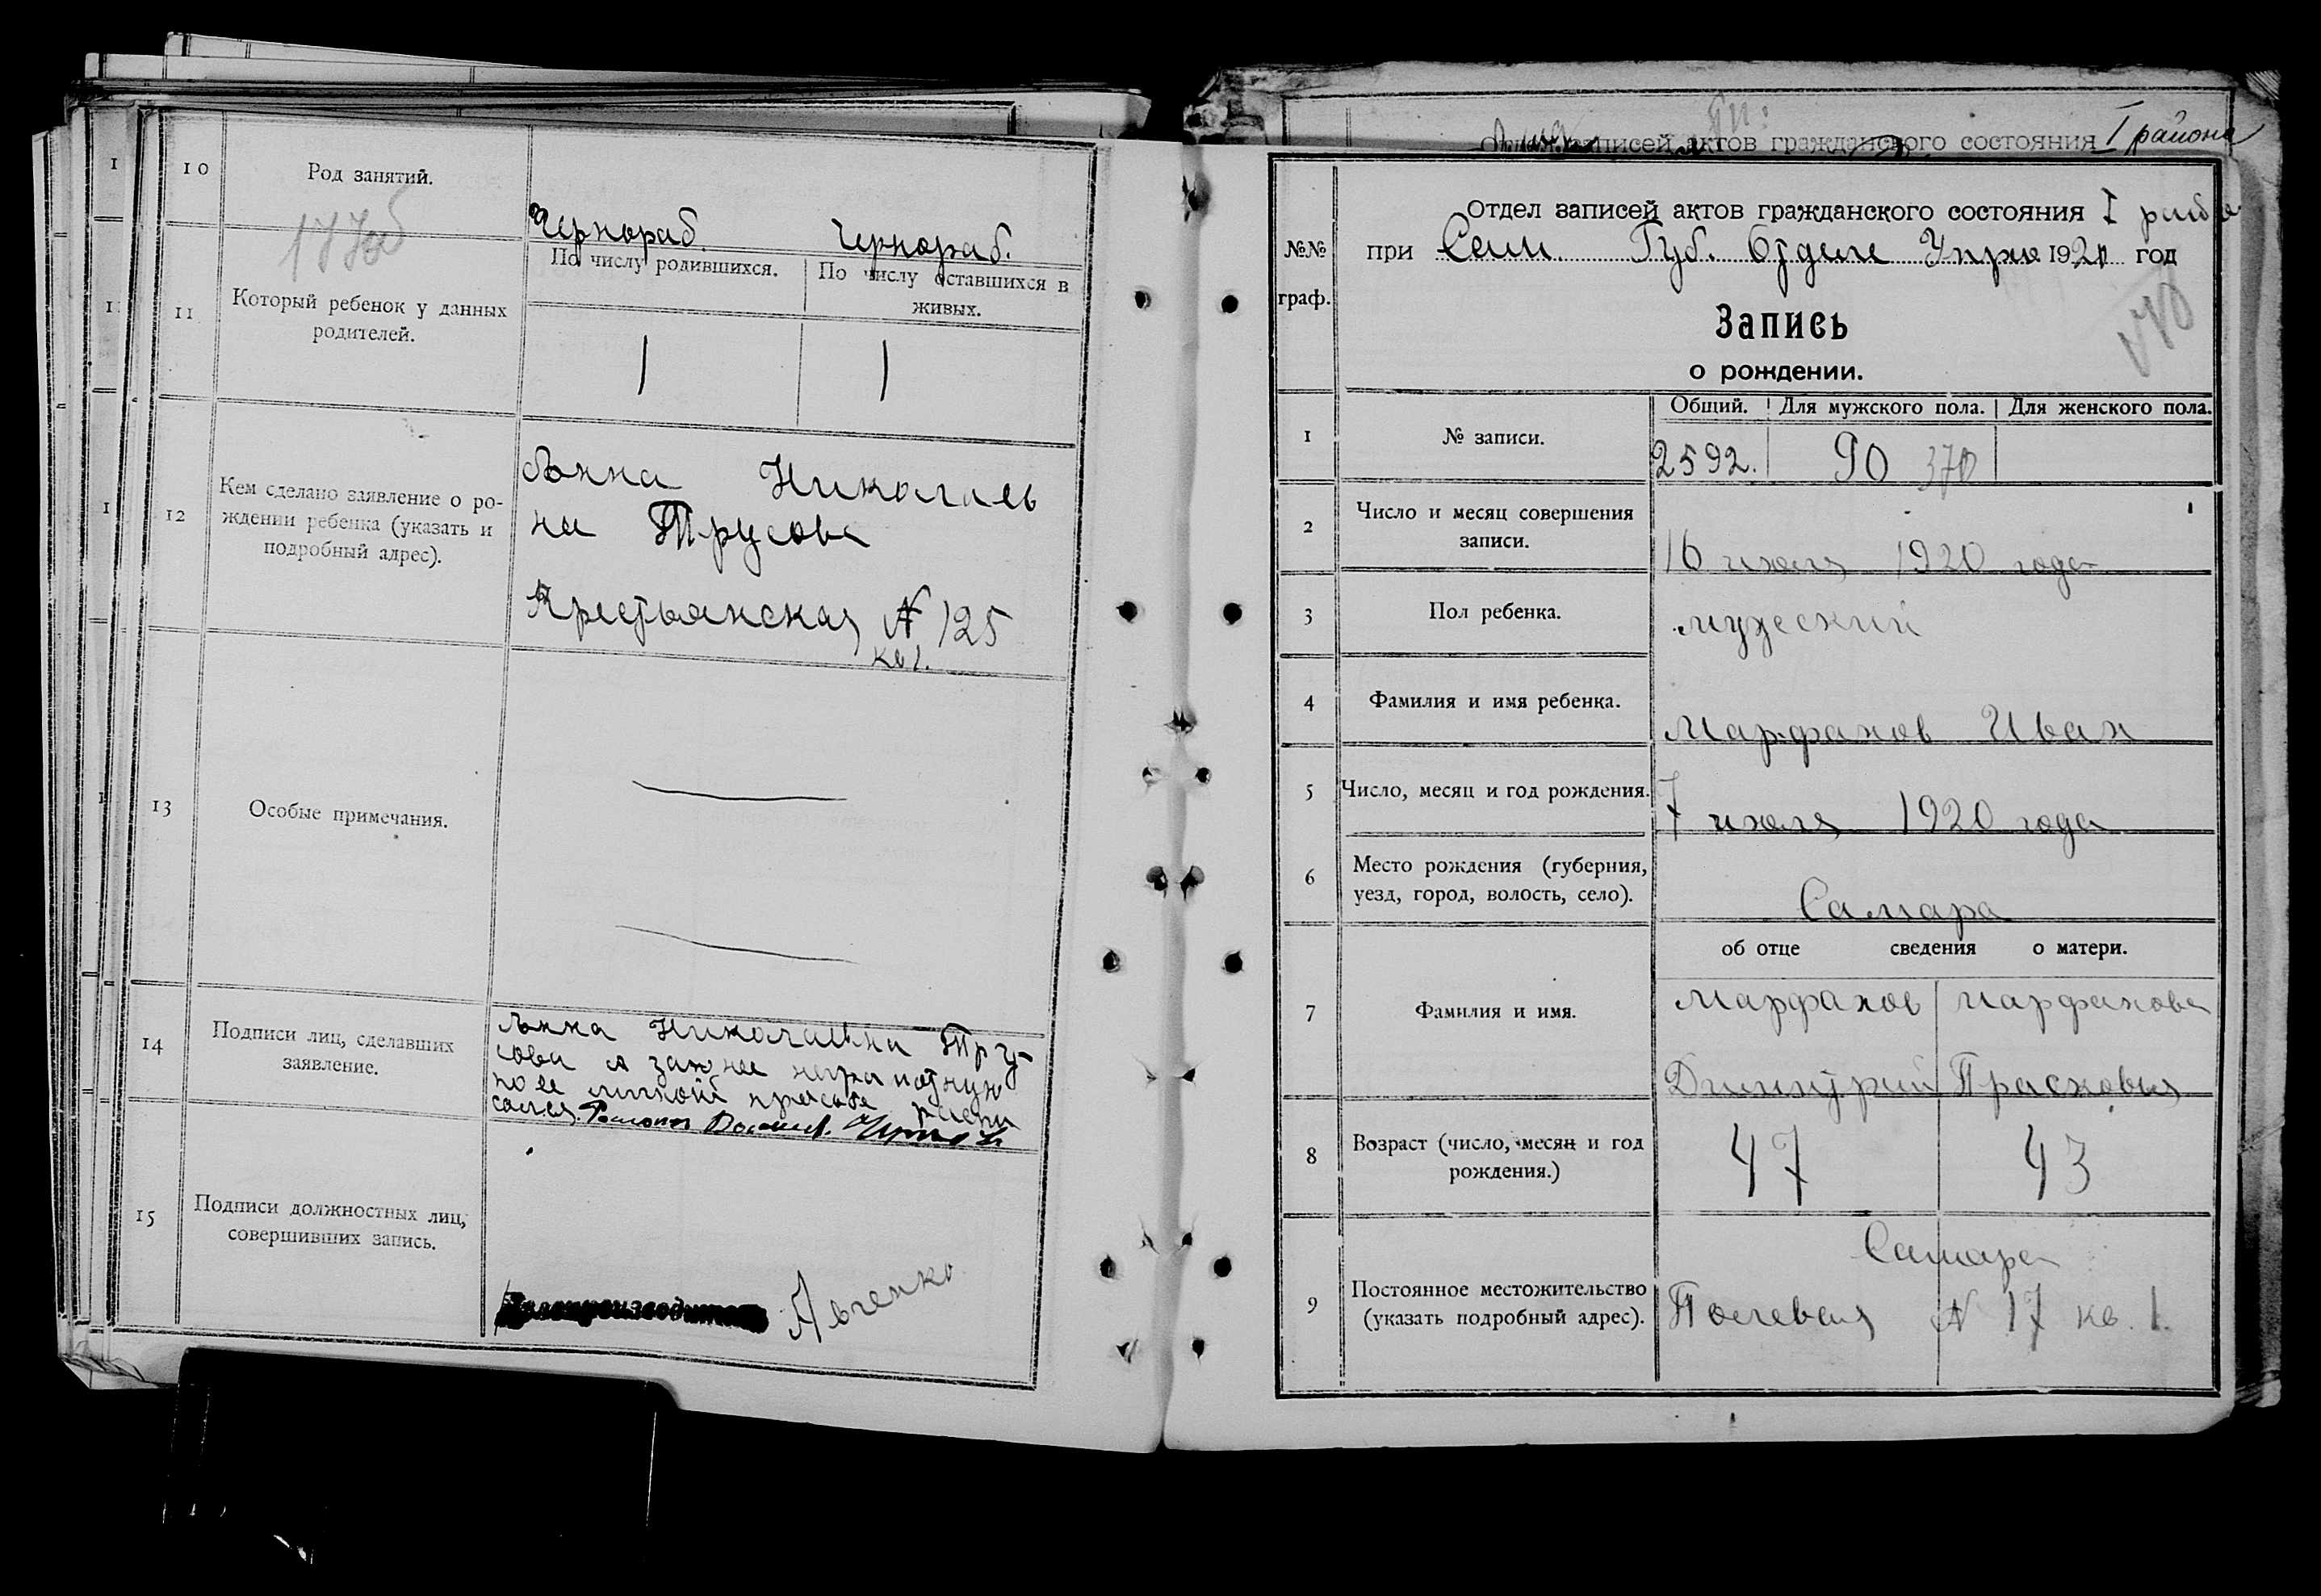 10
Род занятий.
Чернораб. Чернораб.
177об
11
Который ребенок у данных
родителей.
По числу родившихся.
По числу оставшихся в
живых.
1 1
12
Кем сделано заявление о ро-
ждении ребенка (указать и
подробный адрес).
Анна Николаев
на Трусова
Крестьянская № 125
кв 1.
13
Особые примечания.
14
Подписи лиц, сделавших
заявление.
Анна Николаевна Тру-
сова а за нее неграмотную
по ее личной просьбе распи
сался
15
Подписи должностных лиц,
совершивших запись.
записей актов гражданского состояния I района
№№
граф.
Отдел записей актов гражданского состояния I
при Сам. Губ. Отделе Управ 1920 год
Запись
о рождении.
1
№ записи.
Общий. Для мужского пола. Для женского пола.
2592. 90 370
2
Число и месяц совершения
записи.
16 июля 1920 года
3
Пол ребенка.
мужеский
4
Фамилия и имя ребенка.
Марфанов Иван
5
Число, месяц и год рождения.
7 июля 1920 года
6
Место рождения (губерния,
уезд, город, волость, село).
Самара
об отце сведения о матери.
7
Фамилия и имя.
Марфанов Марфанова
Димитрий Прасковья
8
Возраст (число, месяц и год
рождения.)
47 43
9
Постоянное местожительство
(указать подробный адрес).
Самара
Полевая № 17 кв. 1.